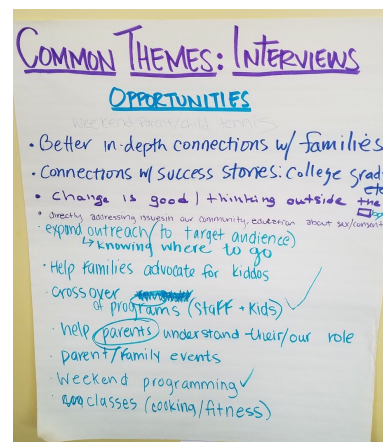 COMMON THEMES: INTERVIEWS
OPPORTUNITIES
Weekend Parent/child tennis
• Better in-depth connections w/ families
• Connections w/ success stories: college grads
etc
• Change is good / thinking outside the
• directly addressing issues in our community, education about sex/consent
• expand outreach (to target audience)
↳ knowing where to go
• Help families advocate for kiddos
• Crossover
of programs (Staff + Kids) ✓
• help parents understand their/our role
• parent/family events
• Weekend programming ✓
• classes (cooking/fitness)